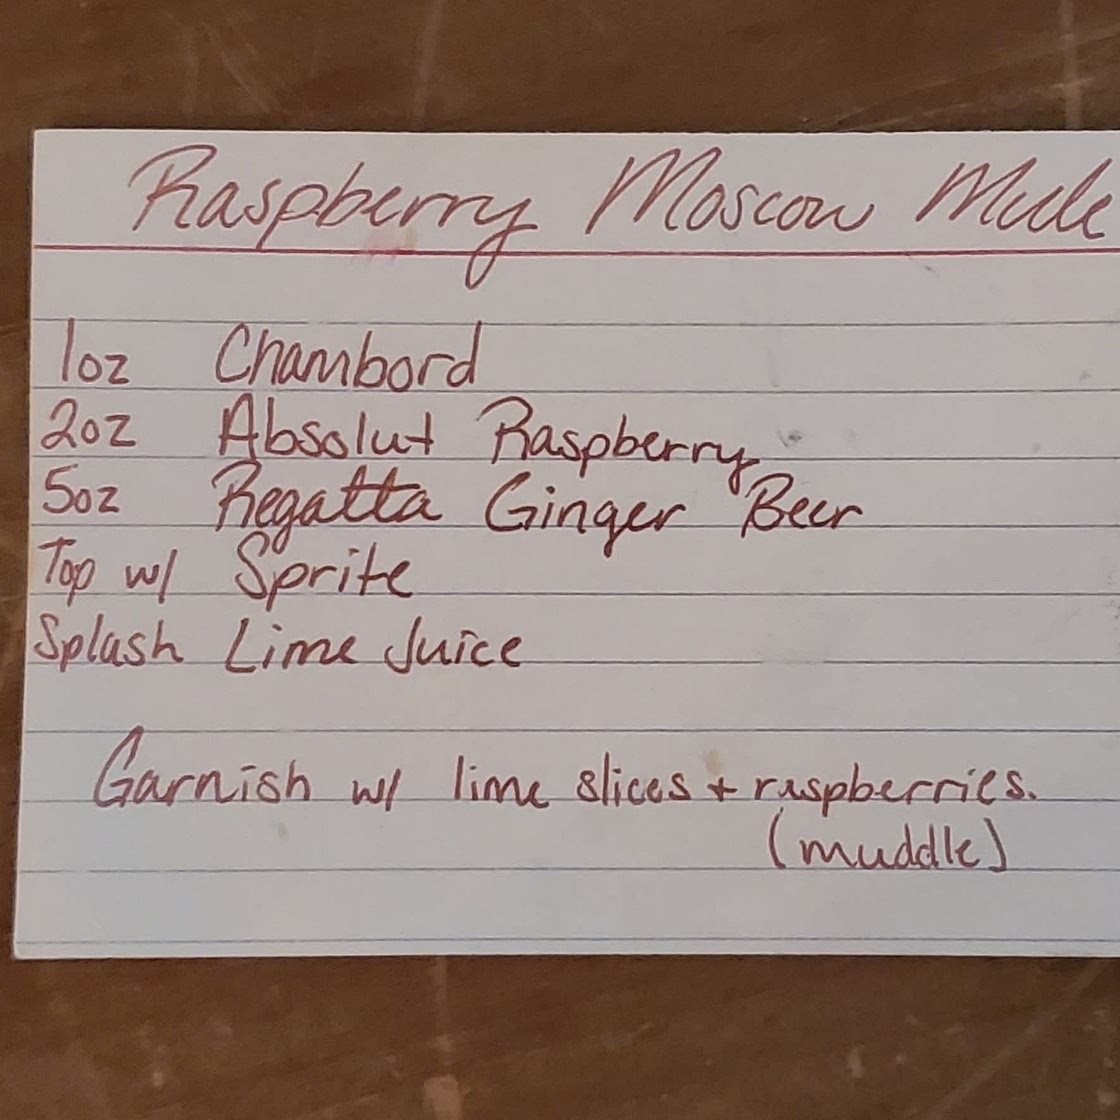 Raspberry Moscow Mule
1oz Chambord
2oz Absolut Raspberry
5oz Regatta Ginger Beer
Top w/ Sprite
Splash Lime Juice
Garnish w/ lime slices + raspberries.
(muddle)